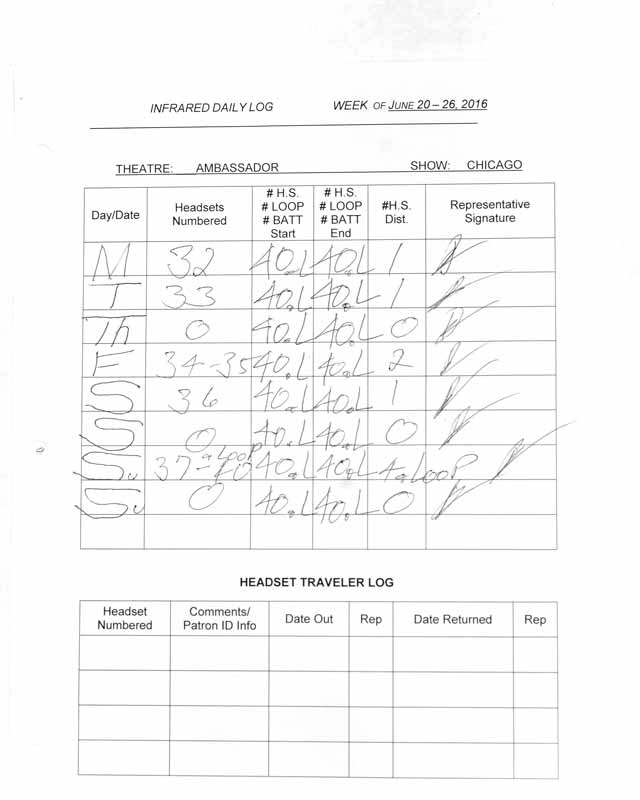 INFRARED DAILY LOG WEEK OF JUNE 20 – 26, 2016
THEATRE: AMBASSADOR SHOW: CHICAGO
Day/Date Headsets Numbered # H.S. # LOOP # BATT Start # H.S. # LOOP # BATT End #H.S. Dist. Representative Signature
M 32 40.L 40.L 1
T 33 40.L 40.L 1
Th 0 40.L 40.L 0
F 34-35 40.L 40.L 2
S 36 40.L 40.L 1
S 0 40.L 40.L 0
Su 37-40 a LOOP 40.L 40.L 4 a LOOP
Su 0 40.L 40.L 0
HEADSET TRAVELER LOG
Headset Numbered Comments/ Patron ID Info Date Out Rep Date Returned Rep